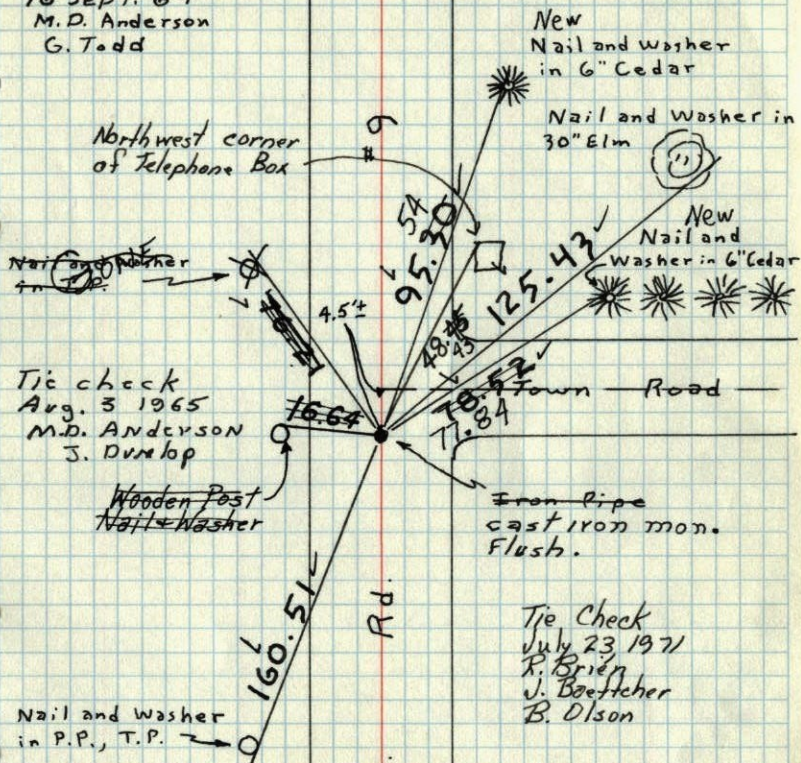 M.D. Anderson
G. Todd
New
Nail and Washer
in 6" Cedar
Nail and Washer in
30" Elm
Northwest corner
of Telephone Box
# 9
New
Nail and
Washer in 6" Cedar
Nail and Washer
in T.P.
54
95.30
125.43
76.21
4.5'±
48.45
43
78.52
77.84
Town Road
Tie check
Aug. 3 1965
M.D. Anderson
J. Dunlop
16.64
Wooden Post
Nail & Washer
Iron Pipe
cast iron mon.
Flush.
160.51
Rd.
Tie Check
July 23, 1971
R. Brien
J. Boettcher
B. Olson
Nail and Washer
in P.P., T.P.